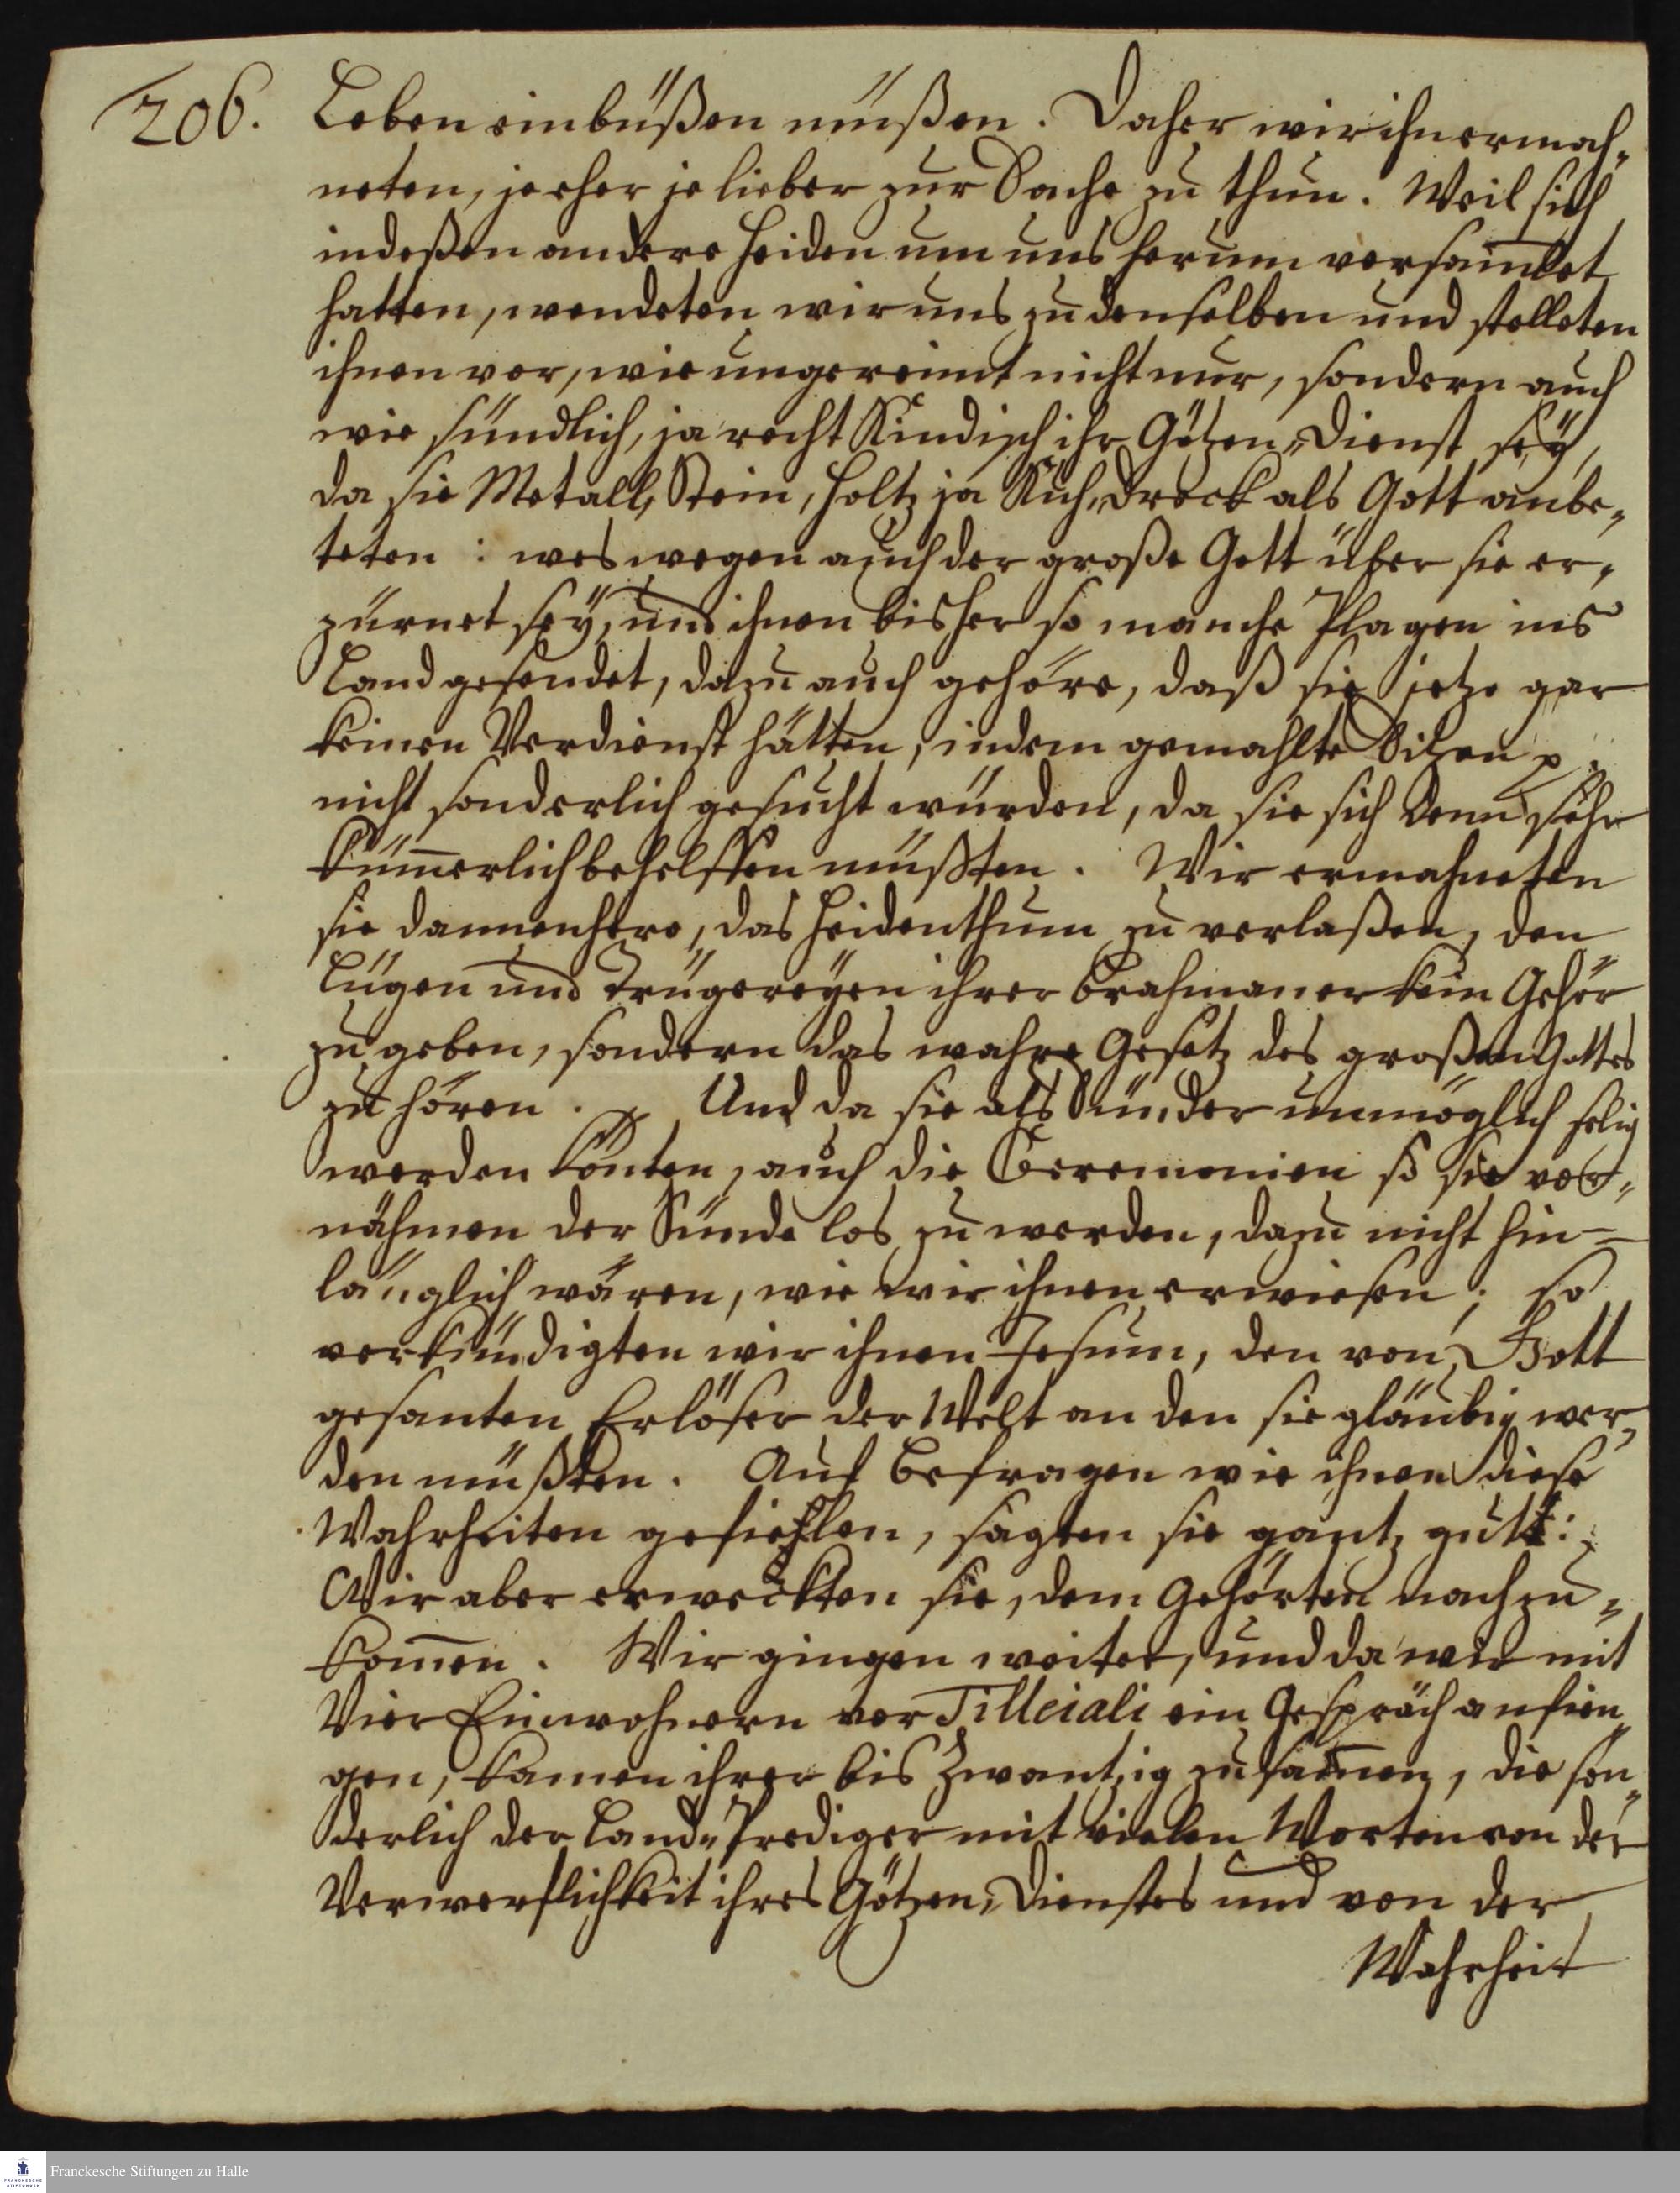 206.
Leben einbüßen müßen. Daher wir ihn ermah-
neten, je eher je lieber zur Sache zu thun. Weil sich
indeßen andere Heiden um uns herum versam̄let
hatten, wendeten wir uns zu denselben und stelleten
ihnen vor, wie ungereimt nicht nur, sondern auch
wie sündlich, ja recht Kindisch ihr Götzen-Dienst seÿ,
da sie Metall, Stein, Holtz ja Küh-Dreck als Gott anbe-
teten: weswegen auch der große Gott über sie er-
zürnet seÿ, und ihnen bisher so manche Plagen ins
Land gesendet, dazu auch gehöre, daß sie jetzo gar
keinen Verdienst hätten, indem gemahlte Zitzen p.
nicht sonderlich gesucht würden, da sie sich denn sehr
küm̄erlich behelffen müßten. Wir ermahneten
sie dannenhero, das Heidenthum zu verlaßen, den
Lügen und Trügereÿen ihrer Brahmaner kein Gehör
zu geben, sondern das wahre Gesetz des großen Gottes
zu hören. Und da sie als Sünder unmöglich selig
werden könten, auch die Ceremonien so sie vor-
nähmen der Sünde los zu werden, dazu nicht hin-
länglich wären, wie wir ihnen erwiesen; so
verkündigten wir ihnen Jesum, den von Gott
gesanten Erlöser der Welt an den sie gläubig wer-
den müßten. Auf Befragen wie ihnen diese
Wahrheiten gefiehlen, sagten sie gantz gut:
Wir aber erweckten sie, dem Gehörten nachzu-
kom̄en. Wir gingen weiter, und da wir mit
Vier Einwohnern vor Tilleiali ein Gespräch anfien-
gen, kamen ihrer bis Zwantzig zusam̄en, die son-
derlich der Land-Prediger mit vielen Worten von der
Verwerflichkeit ihres Götzen-Dienstes und von der
Wahrheit
Franckesche Stiftungen zu Halle